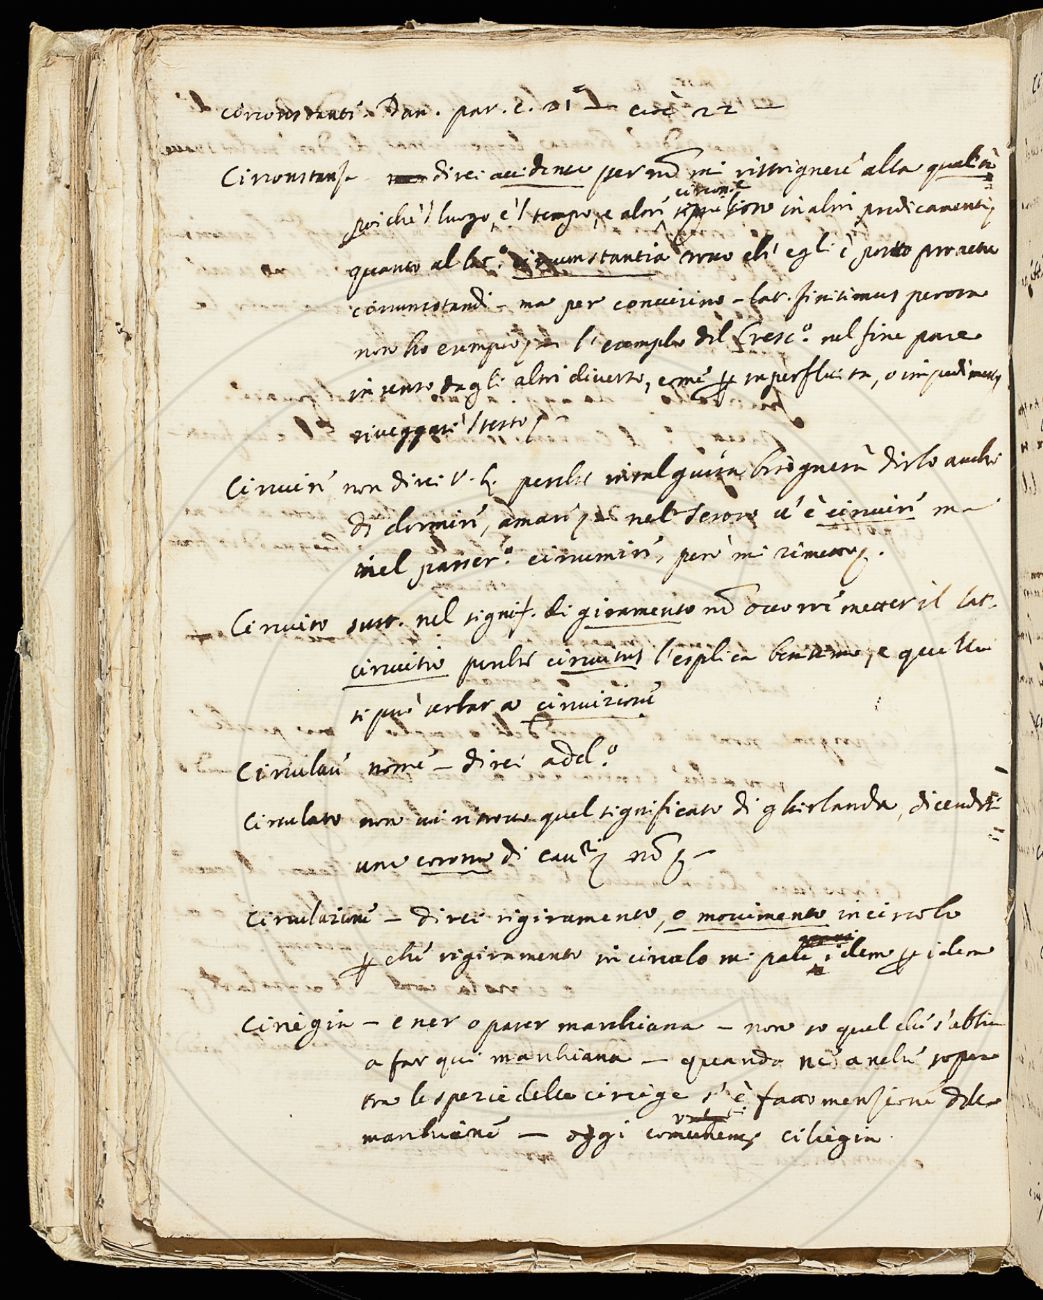 circonstanti Dan. par. c. 21 — cioè 22 —
Circonstanza direi accidente per nō mi ristrignere alla qualità
poiche 'l luogo, e 'l tempo, e altri circonst. sono in altri predicamenti,
quanto al lat.º circumstantia trovo ch' egli è posto pro actu
circumstandi – ma per convicino – lat. finitimus perora
non ho esempio, l' esemplo del Cresc.º nel fine pare
in senso dagli altri diverso, come superfluità, o impedimento
riveggasi 'l testo
Circuire non direi V. L. perche in tal guisa bisognerà dirlo anche
di dormire, amare nel Tesoro v' è circuire ma
nel passer.º circumire, però mi rimetto.
Circuito sust. nel signif. di giramento nō occorre metter il lat.
circuitio perche circuitus l' esplica benissimo, e quella
si può serbar a circuizione
Circulare nome – direi add.º
Circulato non vi ritrovo quel significato di ghirlanda, dicendosi
una corona di nō
Circulazione – direi rigiramento, o movimento in circolo
che rigiramento in circolo mi pare idem idem
Ciriegia – e ner o paser marchiana – non so quel che s' abbia
a far qui marchiana – quando ne anche sopra
tra le spezie delle ciriege s' è fatto menzione delle
marchiane – oggi ciliegia